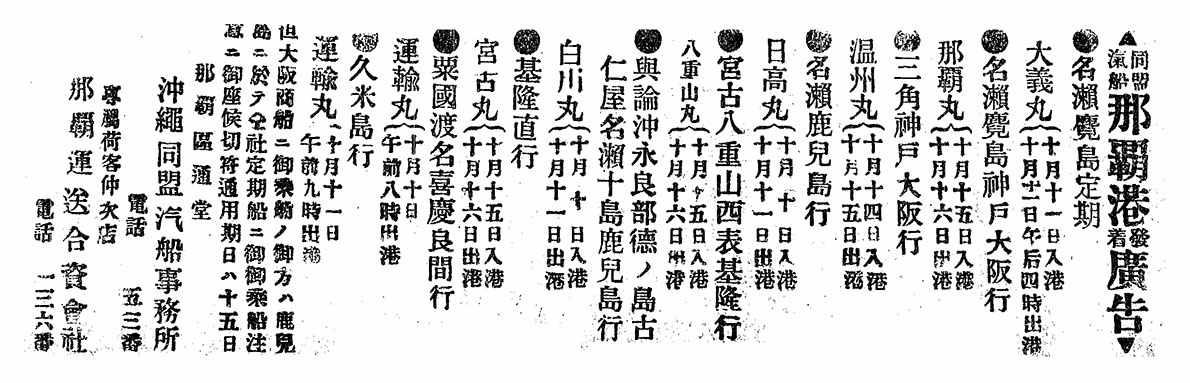 ▲同盟汽船那覇港發着廣告▼
●名瀬鹿兒島定期
大義丸 十月十一日入港 十月十二日午后四時出港
●名瀬鹿兒島神戸大阪行
那覇丸 十月十五日入港 十月十六日出港
●三角神戸大阪行
温州丸 十月十四日入港 十月十五日出港
●名瀬鹿兒島行
日高丸 十月十日入港 十月十一日出港
●宮古八重山西表基隆行
八重山丸 十月十五日入港 十月十六日出港
●與論沖永良部德ノ島古
仁屋名瀬十島鹿兒島行
白川丸 十月十日入港 十月十一日出港
●基隆直行
宮古丸 十月十五日入港 十月十六日出港
●粟國渡名喜慶良間行
運輸丸 十月十日 午前八時出港
●久米島行
運輸丸 十月十一日 午前九時出港
但大阪商船ニ御乘船ノ御方ハ鹿兒
島ニ於テ仝社定期船ニ御乘船注
意ニ御座候切符通用期日ハ十五日
那覇區通堂
沖繩同盟汽船事務所
電話 五三番
專屬荷客仲次店
那覇運送合資會社
電話 一三六番